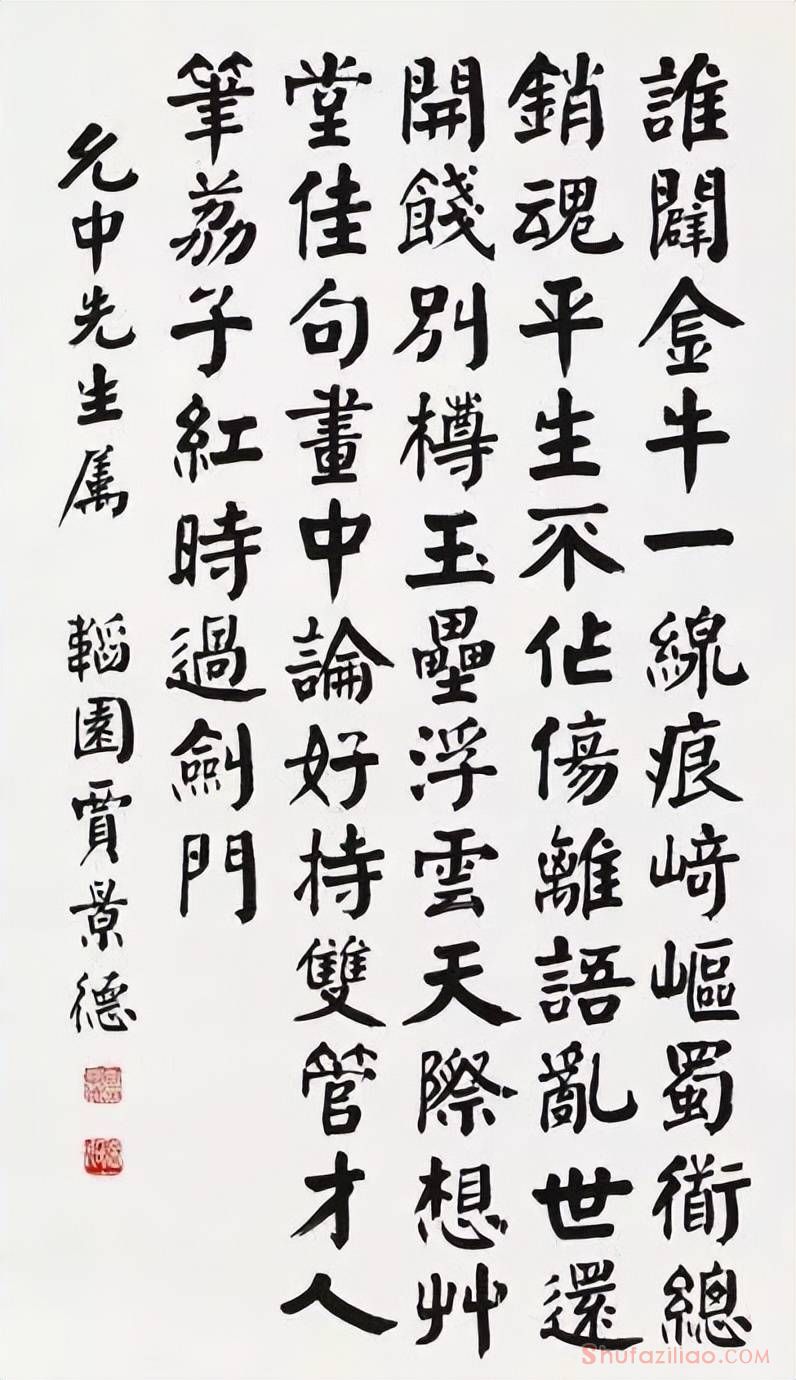 誰闢金牛一線痕崎嶇蜀衜總
銷魂平生不作傷離語亂世還
開餞別樽玉壘浮雲天際想艸
堂佳句畫中論好持雙管才人
筆荔子紅時過劍門
允中先生属 韜園賈景德
Shufaziliao.COM